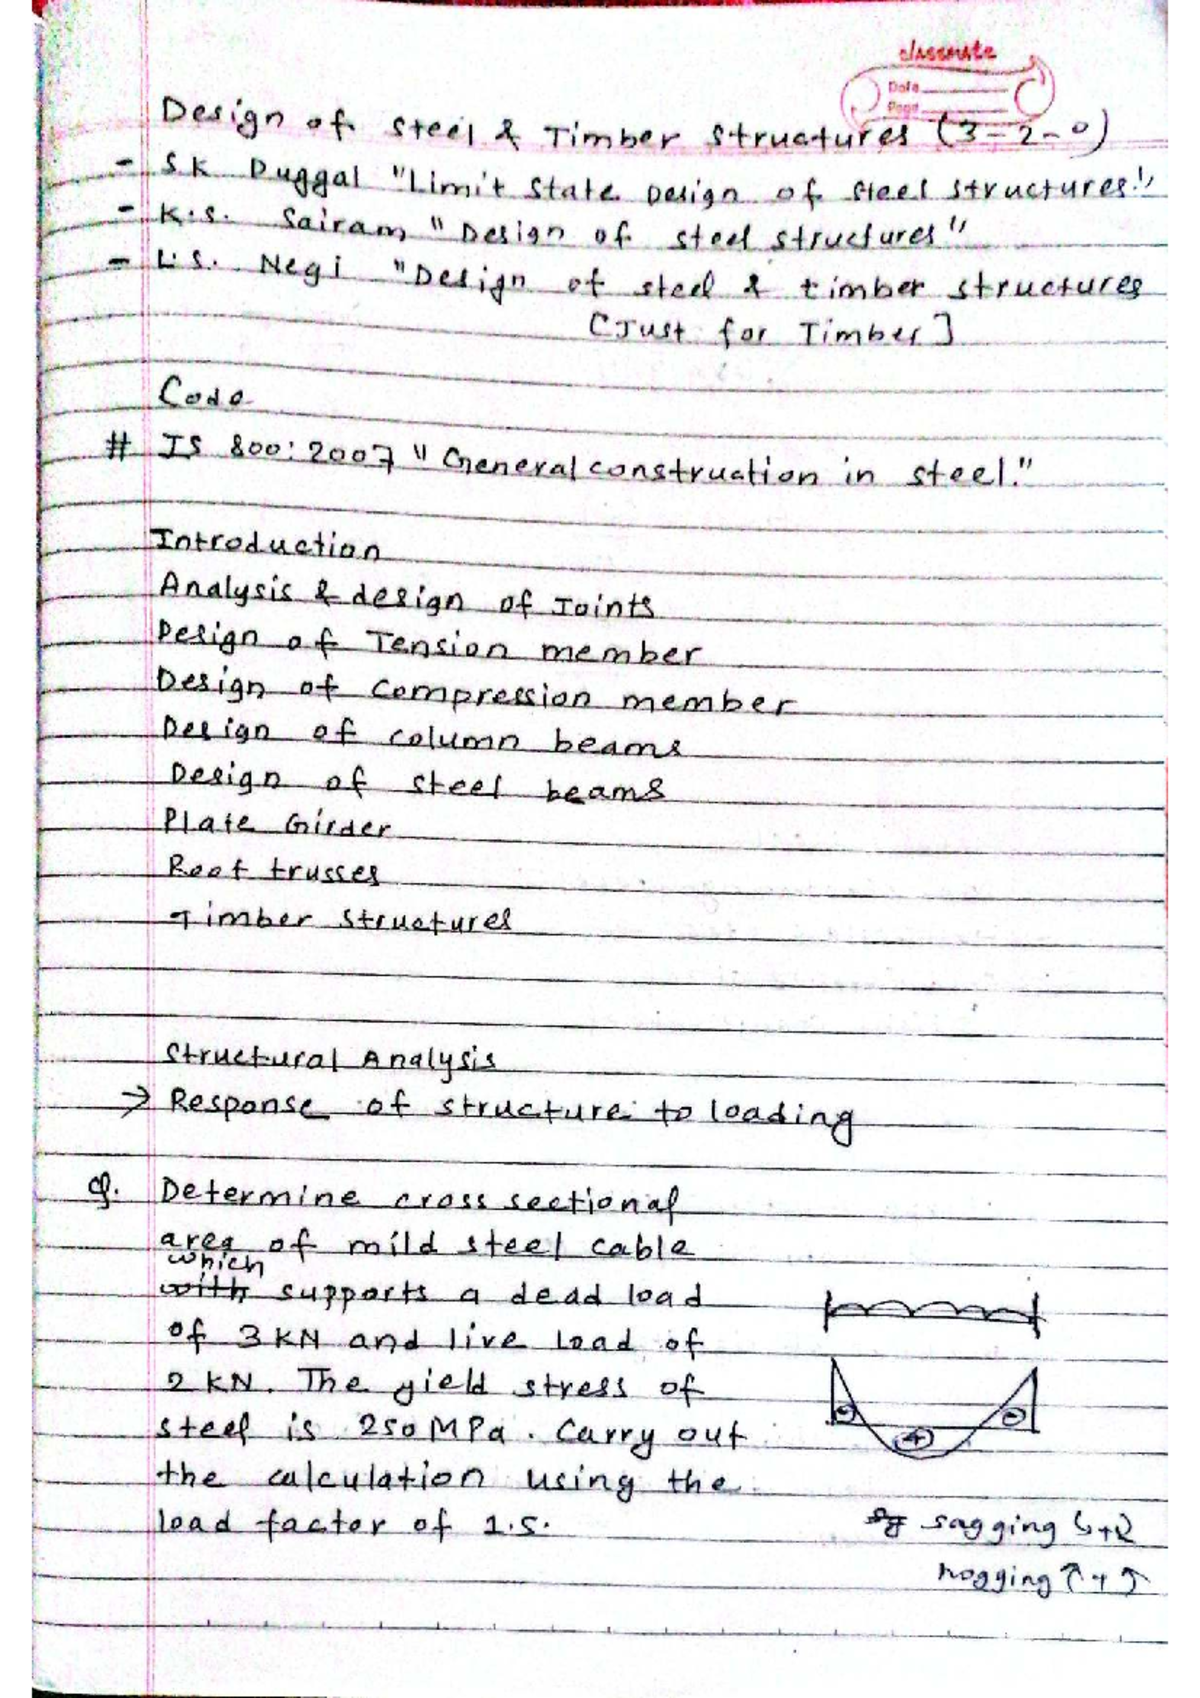 classmate
Date
Page
Design of steel & Timber structures (3-2-0)
- S.K Duggal "Limit state Design of steel structures."
- K.S. Sairam "Design of steel structures"
- L.S. Negi "Design of steel & timber structures
[Just for Timber]
Code
# IS 800:2007 "General construction in steel."
Introduction
Analysis & design of Joints
Design of Tension member
Design of compression member
Design of column beams
Design of steel beams
Plate Girder
Roof trusses
Timber structures
Structural Analysis
→ Response of structure to loading
Q. Determine cross sectional
area of mild steel cable
which
with supports a dead load
of 3 KN and live load of
2 KN. The yield stress of
steel is 250 MPa. Carry out
the calculation using the
load factor of 1.5.
- + -
sagging ↳+2
hogging ↑+↑